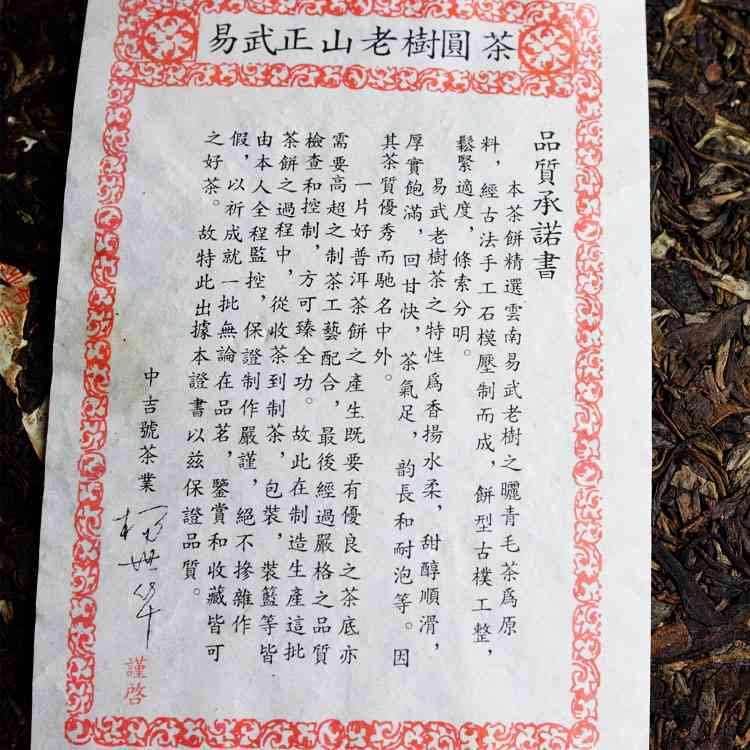 易武正山老樹圓茶
品質承諾書
本茶餅精選雲南易武老樹之曬青毛茶爲原
料，經古法手工石模壓制而成，餅型古樸工整，
鬆緊適度，條索分明。
易武老樹茶之特性爲香揚水柔，甜醇順滑，
厚實飽滿，回甘快，茶氣足，韵長和耐泡等。因
其茶質優秀而馳名中外。
一片好普洱茶餅之產生既要有優良之茶底亦
需要高超之制茶工藝配合，最後經過嚴格之品質
檢查和控制，方可臻全功。故此在制造生產這批
茶餅之過程中，從收茶到制茶，包裝，裝籃等皆
由本人全程監控，保證制作嚴謹，絕不摻雜作
假，以祈成就一批無論在品茗，鑒賞和收藏皆可
之好茶。故特此出據本證書以兹保證品質。
中吉號茶業
楊世華
謹啓